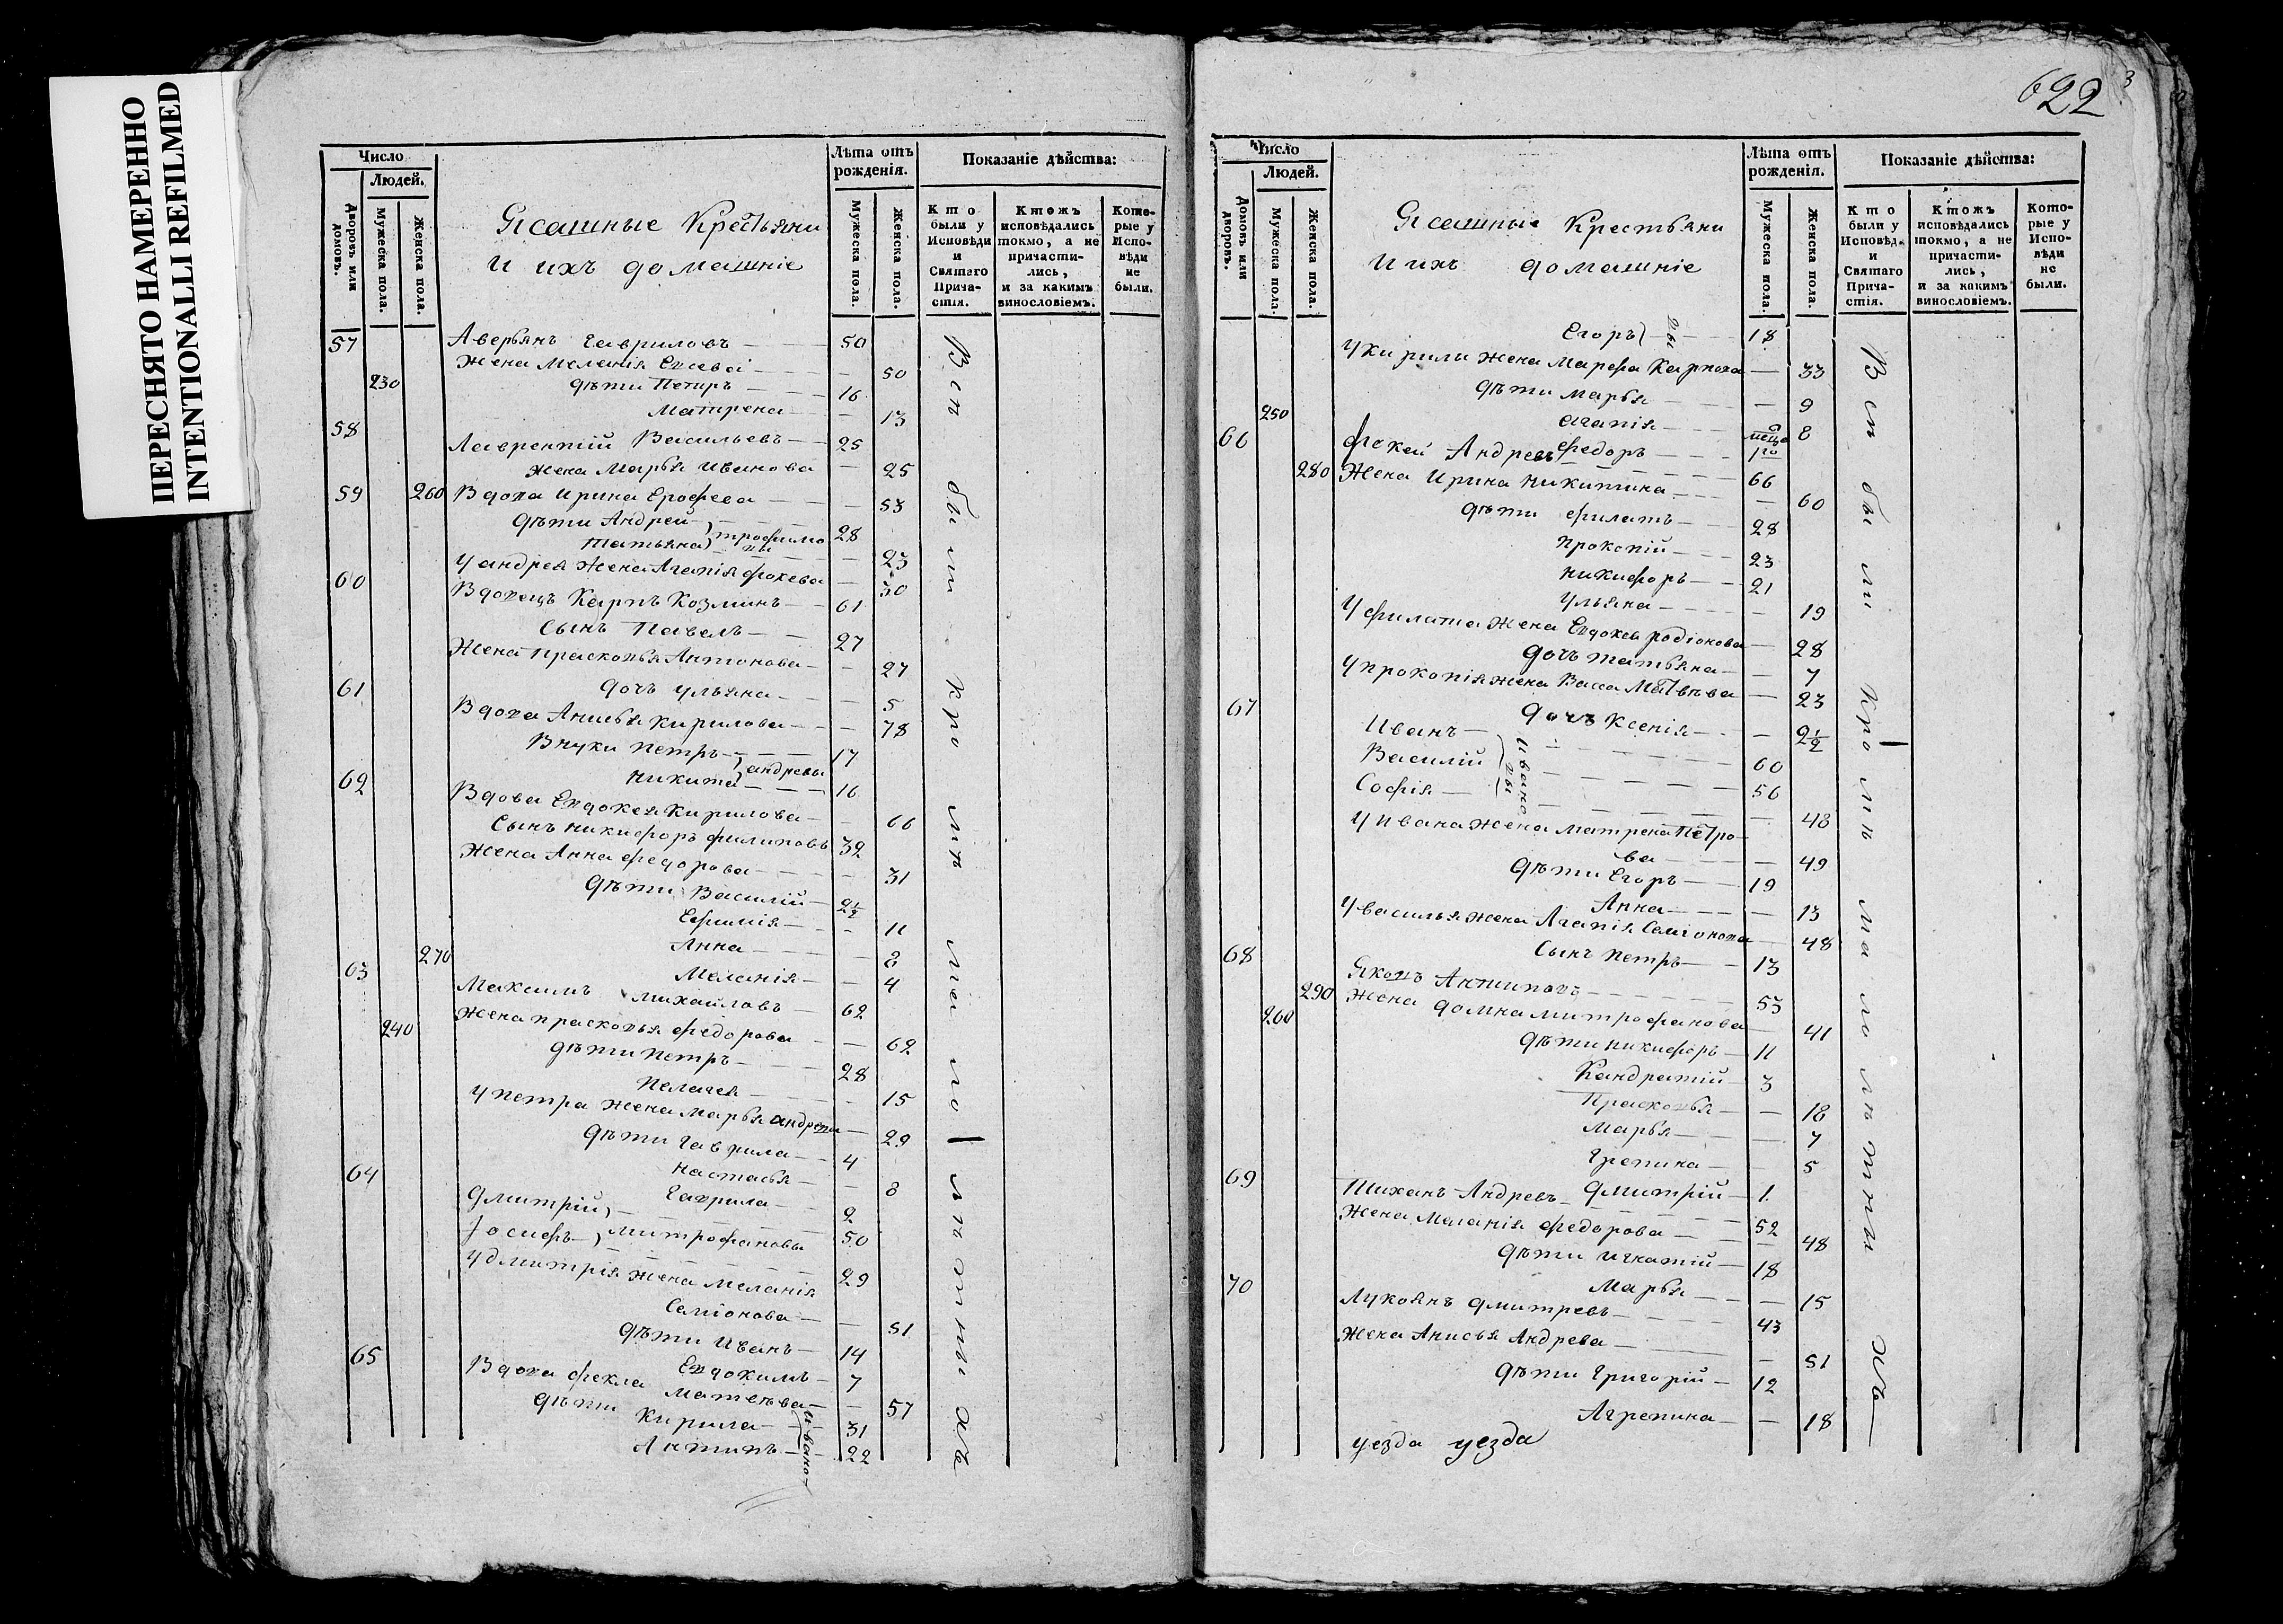 ПЕРЕСНЯТО НАМЕРЕННО
INTENTIONALLI REFILMED
Число
Людей.
Дворовъ или домовъ.
Мужеска пола.
Женска пола.
Ясашные Крестьяни
и ихъ домашніе
Лѣта отъ рожденія.
Мужеска пола.
Женска пола.
Показаніе дѣйства:
Кто были у Исповѣди и Святаго Прича-стія.
Ктожъ исповѣдались токмо, а не причасти-лись, и за какимъ винословіемъ.
Кото-рые у Испо-вѣди не были.
57 Аверьянъ Гавриловъ 50
Жена Меланія 50
230 дѣти Петръ 16
Матрена 13
58 Лаврентій Васильевъ 25
жена Марья Иванова 25
59 260 Вдова Ирина Ерофеева 53
дѣти Андрей 28
Татьяна трофимовы 23
У андрея жена Агапія фокева 30
60 Вдовецъ Карпъ Козминъ 61
Сынъ Павелъ 27
Жена Прасковья Антонова 27
дочь ульяна 5
61 Вдова Анисья Кирилова 78
Внуки петръ 17
никита андревы 16
62 Вдова Евдокея Кирилова 66
Сынъ никифоръ филиповъ 32
Жена Анна федорова 31
дѣти Василій 2½
Ефимія 11
Анна 8
270 Меланія 4
63 Максимъ михайловъ 62
Жена прасковья федорова 62
240 дѣти петръ 28
Пелагея 15
У петра жена марья андрева 29
дѣти гаврила 4
настасья 8
гаврила 2
64 дмитрій 50
Іосифъ митрофановы 29
У дмитрія жена меланія
Семіонова 51
дѣти Иванъ 14
Евдокимъ 7
65 Вдова фекла матвѣва 57
дѣти Кирила 31
Антипъ Ивано 22
Всѣ были кромѣ малолѣтныхъ
622
3
Число
Людей.
Домовъ или дворовъ.
Мужеска пола.
Женска пола.
Ясашніе Крестьяни
и ихъ домашніе
Лѣта отъ рожденія.
Мужеска пола.
Женска пола.
Показаніе дѣйства:
Кто были у Исповѣди и Святаго Прича-стія.
Ктожъ исповѣдались токмо, а не причасти-лись, и за какимъ винословіемъ.
Кото-рые у Испо-вѣди не были.
Егоръ вы 18
У кирилы жена Марфа Карпова 33
дѣти марья 9
250 агапія 8
федоръ
66 фокей Андревъ 66
280 Жена Ирина никитина 60
дѣти филатъ 28
прокопій 23
никифоръ 21
ульяна 19
У филата жена Евдокея родіонова 28
дочь татьяна 7
У прокопія жена Васса Матвѣва 23
дочь ксенія 2½
67 Иванъ 60
Василій Ивановы 56
Софія 48
У ивана жена матрена Петро
ва 49
дѣти Егоръ 19
Анна 13
У василья жена Агапія Семіонова 48
Сынъ петръ 13
68 Яковъ Антиповъ 53
290 Жена домна митрофанова 41
260 дѣти никифоръ 11
Кандратій 3
Прасковья 18
Марья 7
Грепина 5
дмитрій 1
69 Тиханъ Андревъ 52
Жена Меланія федорова 48
дѣти игнатій 18
Марья 15
70 Лукоянъ дмитревъ 43
жена Анисья Андрева 51
дѣти григорій 12
Агрепина 18
уезда уезда
Всѣ были кромѣ малолѣтныхъ